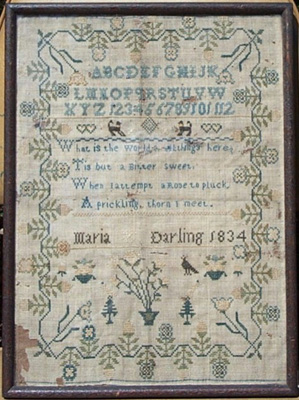 ABCDEFGHIJK
LMNOPQRSTUVW
XYZ 123456789101112
What is the World
Tis but a Bitter sweet.
When I attempt a Rose to pluck,
A prickling, thorn I meet.
Maria Darling 1834